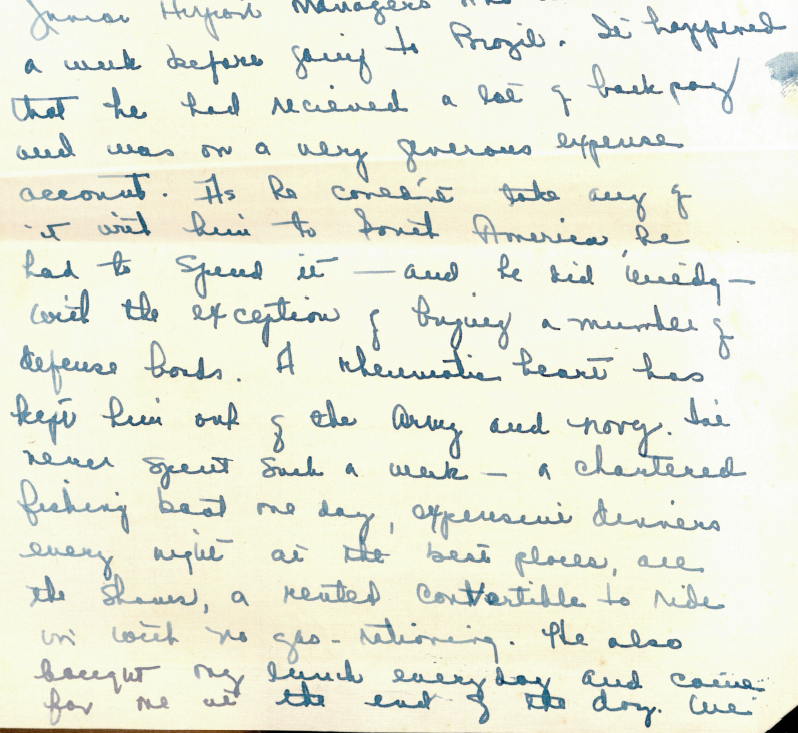 Junior Airport Managers
a week before going to Brazil. It happened
that he had recieved a lot of back pay
and was on a very generous expense
account. As he couldn't take any of
it with him to South America, he
had to spend it — and he did —
with the exception of buying a number of
defense bonds. A rheumatic heart has
kept him out of the Army and Navy. I've
never spent such a week — a chartered
fishing boat one day, expensive dinners
every night at the best places, all
the shows, a rented convertible to ride
in with no gas-rationing. He also
bought my lunch everyday and came
for me at the end of the day. We